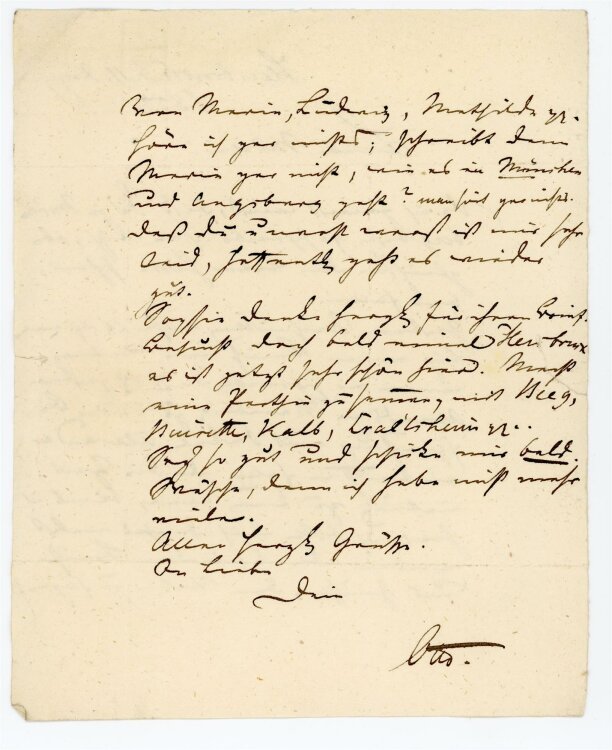 Von Marie, Ludwig, Mathilde pp.
höre ich gar nichts; schreibt denn
Marie gar nicht, wie es in München
und Augsburg geht? man hört gar nichts.
Daß du unwohl warst ist mir sehr
leid, hoffentlich geht es wieder
gut.
Sophie danke herzl. für ihren Brief.
Besucht doch bald einmal
es ist jetzt sehr schön hier. Macht
eine Parthie zusammen mit Beeg,
Buirette, Kalb, Crailsheim pp..
Sey so gut und schicke mir bald
Wäsche, denn ich habe nicht mehr
viele.
Allen herzl. Grüße.
In Liebe
Dein
Otto.